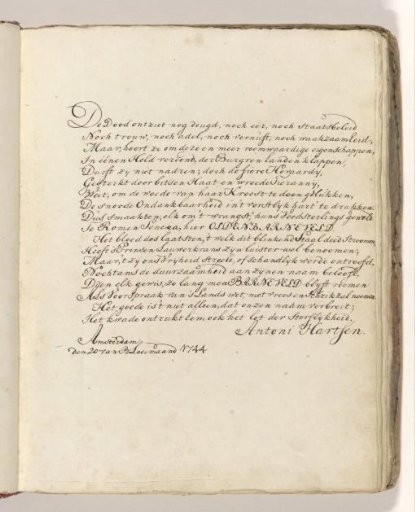 De Dood ontziet nog deugd, noch eer, noch Staatsbeleid
Noch trouw, noch adel, noch vernuft, noch waakzaamheid;
Maar, hoort ze om deze en meer roemwaardige eigenschappen,
In éénen Held vereent, der Burgren landen klappen,
Durft zy niet nadren; doch de fiere
Gesterkt door bitsen Haat en wreede Tieranny,
Weet, om de woede van haar Kroost te doen gelukken,
De snoode Ondankbaarheid in 't vorstlyk hart te drukken.
Dus smaakten, elk om 't wrangst, hens Voedsterlings geweld
Te Romen Seneca, hier OLDENBARNEVELD.
Het bloed des laatsten, 't welk dit blinkend Staal deed stroomen,
Heeft 's Prinsen Lauwerkrans zyn luister wel benomen;
Maar, 't zy ons Vryheid streele, of schandlyk werde ontroofd,
Nochtans de duurzaamheid aan zynen naam belooft;
Dien elk gewis, zo lang men BARNEVELD blyft roemen
Als Voorspraak van 's Lands wet, met vrees en schrik zal noemen.
Het goede is 't niet alleen, dat onzen naam verbreit;
Het kwade ontrukt hem ook het lot der Sterflykheid.
Antoni Hartsen.
Amsterdam,
den 20 van Bloeimaand 1744